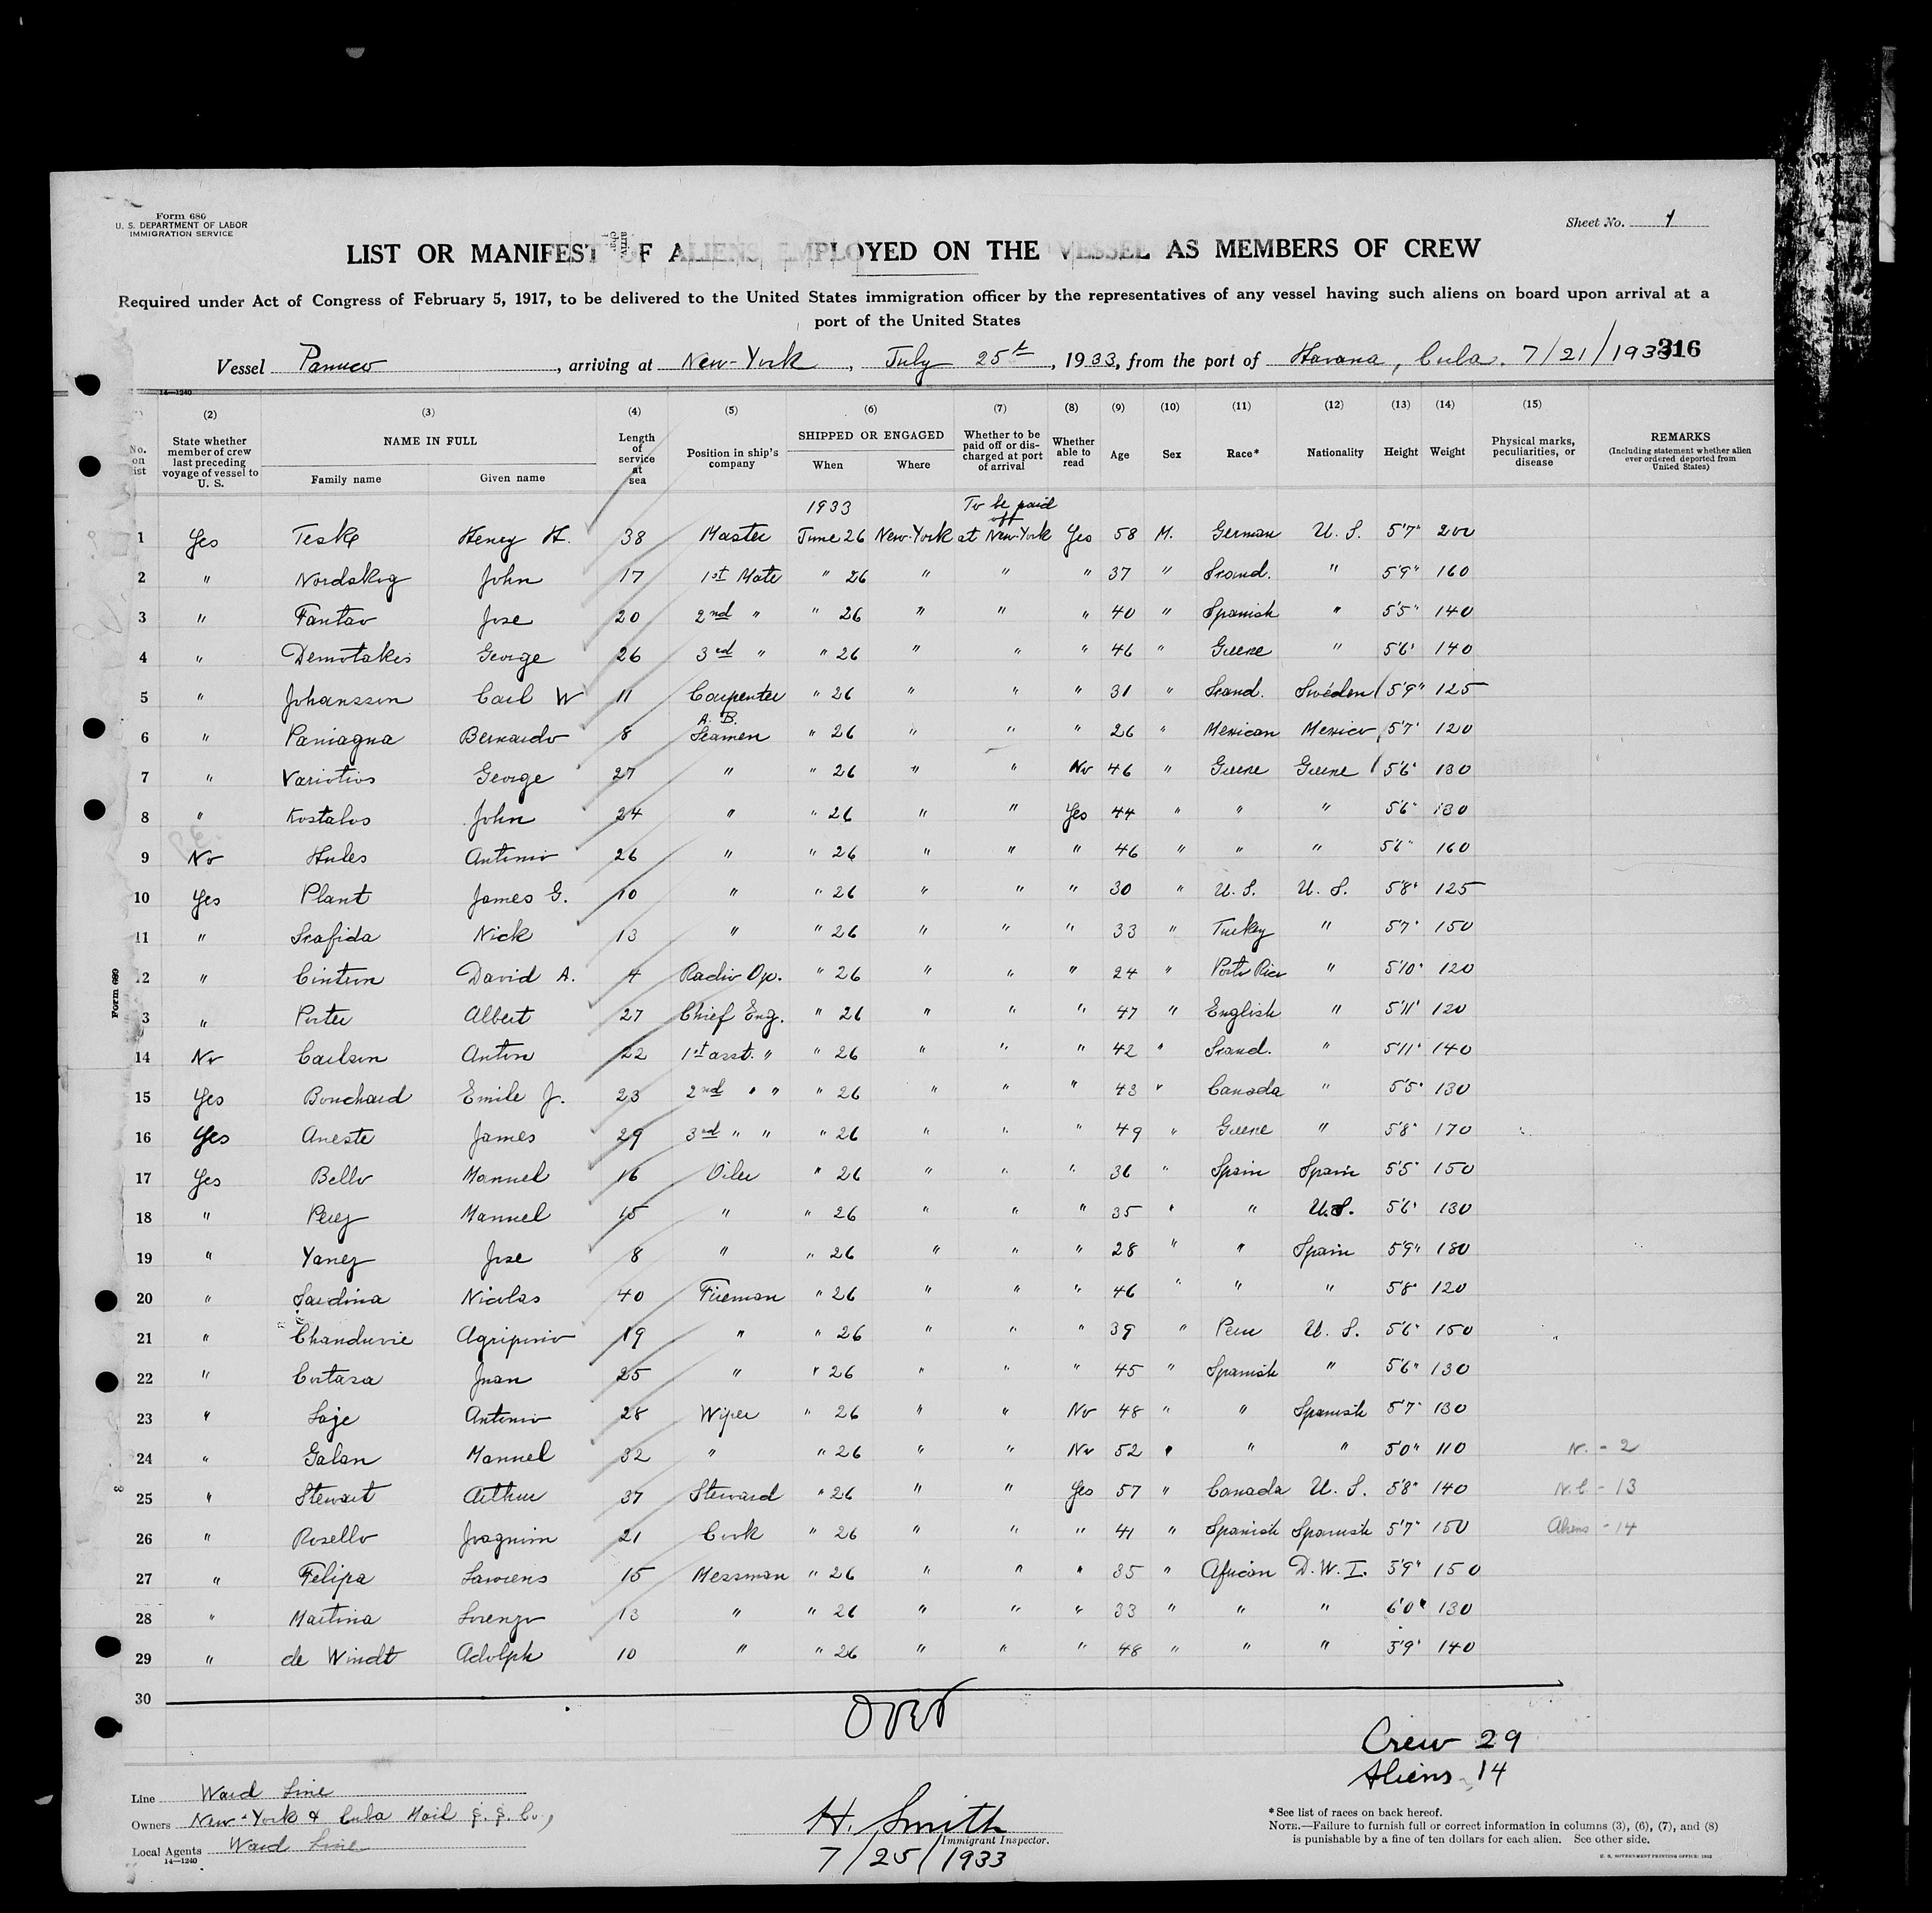 Form 680
U. S. DEPARTMENT OF LABOR
IMMIGRATION SERVICE
Sheet No. 1
LIST OR MANIFEST OF ALIENS EMPLOYED ON THE VESSEL AS MEMBERS OF CREW
Required under Act of Congress of February 5, 1917, to be delivered to the United States immigration officer by the representatives of any vessel having such aliens on board upon arrival at a
port of the United States
Vessel Panuco, arriving at New-York, July 25th, 1933, from the port of Havana, Cuba. 7/21/1933 316
14—1240
(2) (3) (4) (5) (6) (7) (8) (9) (10) (11) (12) (13) (14) (15)
No. on list State whether member of crew last preceding voyage of vessel to U. S. NAME IN FULL Family name Given name Length of service at sea Position in ship's company SHIPPED OR ENGAGED When Where Whether to be paid off or discharged at port of arrival Whether able to read Age Sex Race* Nationality Height Weight Physical marks, peculiarities, or disease REMARKS (Including statement whether alien ever ordered deported from United States)
1933 To be paid off
1 Yes Teske Henry H. 38 Master June 26 New-York at New-York Yes 58 M. German U. S. 5'7" 200
2 " Nordskog John 17 1st Mate " 26 " " " 37 " Scand. " 5'9" 160
3 " Fantao Jose 20 2nd " " 26 " " " 40 " Spanish " 5'5" 140
4 " Demotakis George 26 3rd " " 26 " " " 46 " Greece " 5'6" 140
5 " Johansson Carl W 11 Carpenter " 26 " " " 31 " Scand. Sweden 5'9" 125
6 " Paniagua Bernardo 8 A. B. Seamen " 26 " " " 26 " Mexican Mexico 5'7" 120
7 " Variotios George 27 " " 26 " " No 46 " Greece Greece 5'6" 130
8 " Kostalos John 24 " " 26 " " Yes 44 " " " 5'6" 130
9 No Hules Antonio 26 " " 26 " " " 46 " " " 5'6" 160
10 Yes Plant James G. 10 " " 26 " " " 30 " U. S. U. S. 5'8" 125
11 " Scafida Nick 13 " " 26 " " " 33 " Turkey " 5'7" 150
12 " Cintron David A. 4 Radio Op. " 26 " " " 24 " Porto Rico " 5'10" 120
13 " Porter Albert 27 Chief Eng. " 26 " " " 47 " English " 5'11" 120
14 No Carlson Anton 22 1st asst. " " 26 " " " 42 " Scand. " 5'11" 140
15 Yes Bouchard Emile J. 23 2nd " " " 26 " " " 43 " Canada " 5'5" 130
16 Yes Aneste James 29 3rd " " " 26 " " " 49 " Greece " 5'8" 170
17 Yes Bello Manuel 16 Oiler " 26 " " " 36 " Spain Spain 5'5" 150
18 " Perez Manuel 15 " " 26 " " " 35 " " U.S. 5'6" 130
19 " Yanez Jose 8 " " 26 " " " 28 " " Spain 5'9" 180
20 " Sardina Nicolas 40 Fireman " 26 " " " 46 " " " 5'8" 120
21 " Chanduvie Agripino 19 " " 26 " " " 39 " Peru U. S. 5'6" 150
22 " Cortasa Juan 25 " " 26 " " " 45 " Spanish " 5'6" 130
23 " Saje Antonio 28 Wiper " 26 " " No 48 " " Spanish 5'7" 130
24 " Galan Manuel 32 " " 26 " " No 52 " " " 5'0" 110 N. - 2
25 " Stewart Arthur 37 Steward " 26 " " Yes 57 " Canada U. S. 5'8" 140 N.C. - 13
26 " Rosello Joaquim 21 Cook " 26 " " " 41 " Spanish Spanish 5'7" 150 Aliens - 14
27 " Felipa Lawrens 15 Messman " 26 " " " 35 " African D. W. I. 5'9" 150
28 " Martina Lorenzo 13 " " 26 " " " 33 " " " 6'0" 130
29 " de Windt Adolph 10 " " 26 " " " 48 " " " 5'9" 140
30
Form 680
Over
Crew 29
Aliens 14
Line Ward Line
Owners New-York & Cuba Mail S. S. Co.,
Local Agents Ward Line
14—1240
H. Smith
Immigrant Inspector.
7/25/1933
*See list of races on back hereof.
NOTE.—Failure to furnish full or correct information in columns (3), (6), (7), and (8)
is punishable by a fine of ten dollars for each alien. See other side.
U. S. GOVERNMENT PRINTING OFFICE: 1932